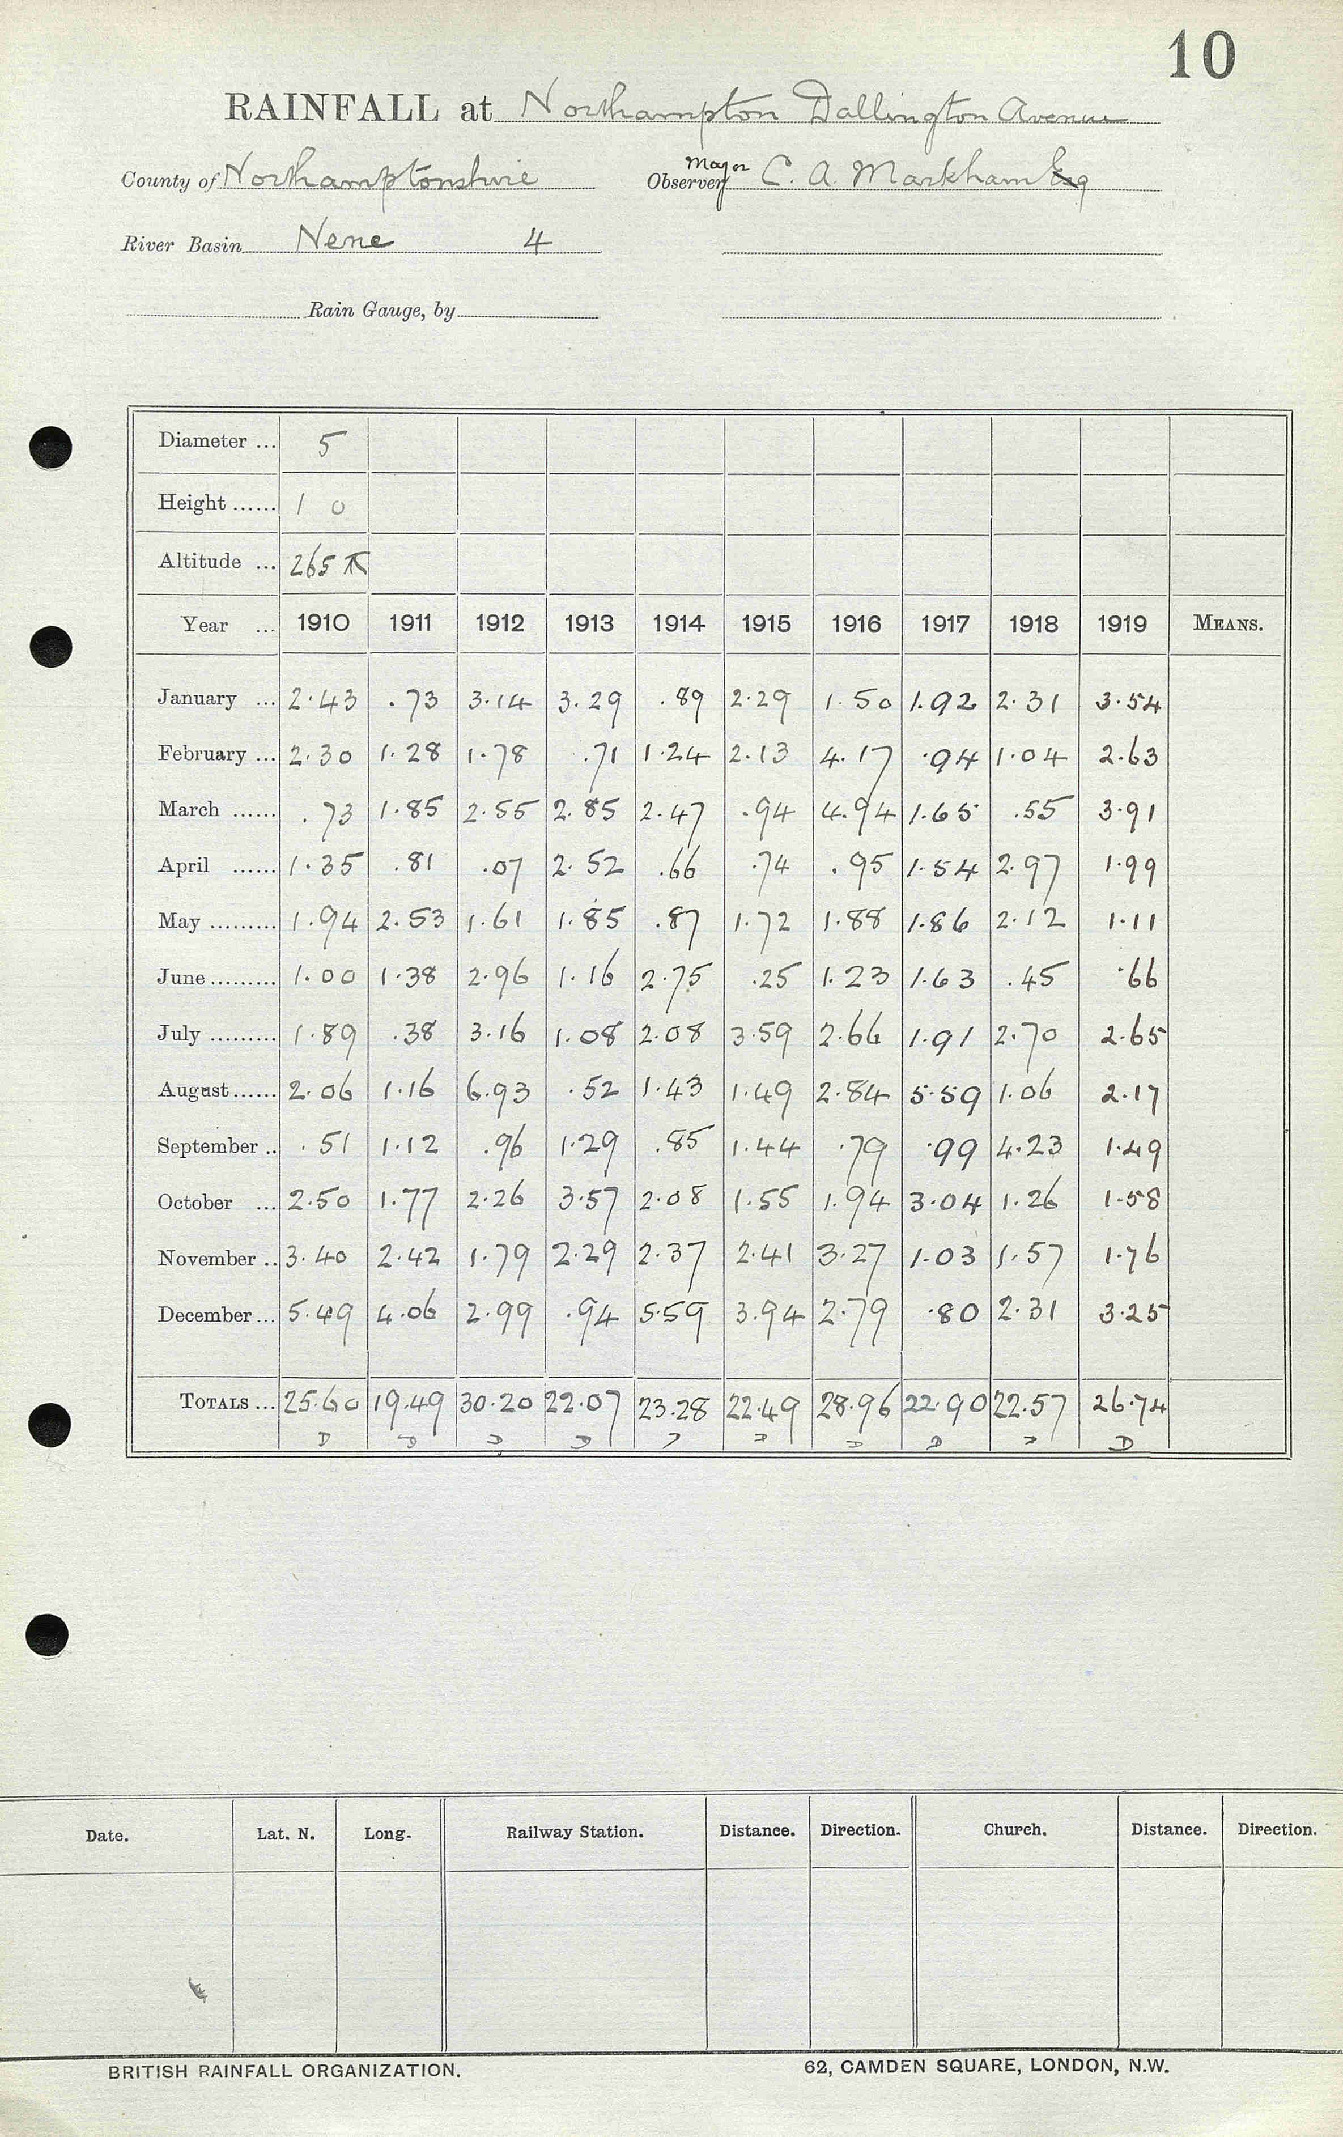 10
RAINFALL at Northampton Dallington Avenue
County of Northamptonshire Major Observer C. A. Markham Esq
River Basin Nene 4
Rain Gauge, by
Diameter ... 5
Height ...... 1 0
Altitude ... 265
Year ... 1910 1911 1912 1913 1914 1915 1916 1917 1918 1919 MEANS.
January ... 2.43 .73 3.14 3.29 .89 2.29 1.50 1.92 2.31 3.54
February ... 2.30 1.28 1.78 .71 1.24 2.13 4.17 .94 1.04 2.63
March ...... .73 1.85 2.55 2.85 2.47 .94 4.94 1.65 .55 3.91
April ...... 1.35 .81 .07 2.52 .66 .74 .95 1.54 2.97 1.99
May ......... 1.94 2.53 1.61 1.85 .87 1.72 1.88 1.86 2.12 1.11
June ......... 1.00 1.38 2.96 1.16 2.75 .25 1.23 1.63 .45 .66
July ......... 1.89 .38 3.16 1.08 2.08 3.59 2.66 1.91 2.70 2.65
August ...... 2.06 1.16 6.93 .52 1.43 1.49 2.84 5.59 1.06 2.17
September .. .51 1.12 .96 1.29 .85 1.44 .79 .99 4.23 1.49
October ... 2.50 1.77 2.26 3.57 2.08 1.55 1.94 3.04 1.26 1.58
November .. 3.40 2.42 1.79 2.29 2.37 2.41 3.27 1.03 1.57 1.76
December ... 5.49 4.06 2.99 .94 5.59 3.94 2.79 .80 2.31 3.25
TOTALS ... 25.60 19.49 30.20 22.07 23.28 22.49 28.96 22.90 22.57 26.74
D D D D D D D D D D
Date. Lat. N. Long. Railway Station. Distance. Direction. Church. Distance. Direction.
BRITISH RAINFALL ORGANIZATION. 62, CAMDEN SQUARE, LONDON, N.W.